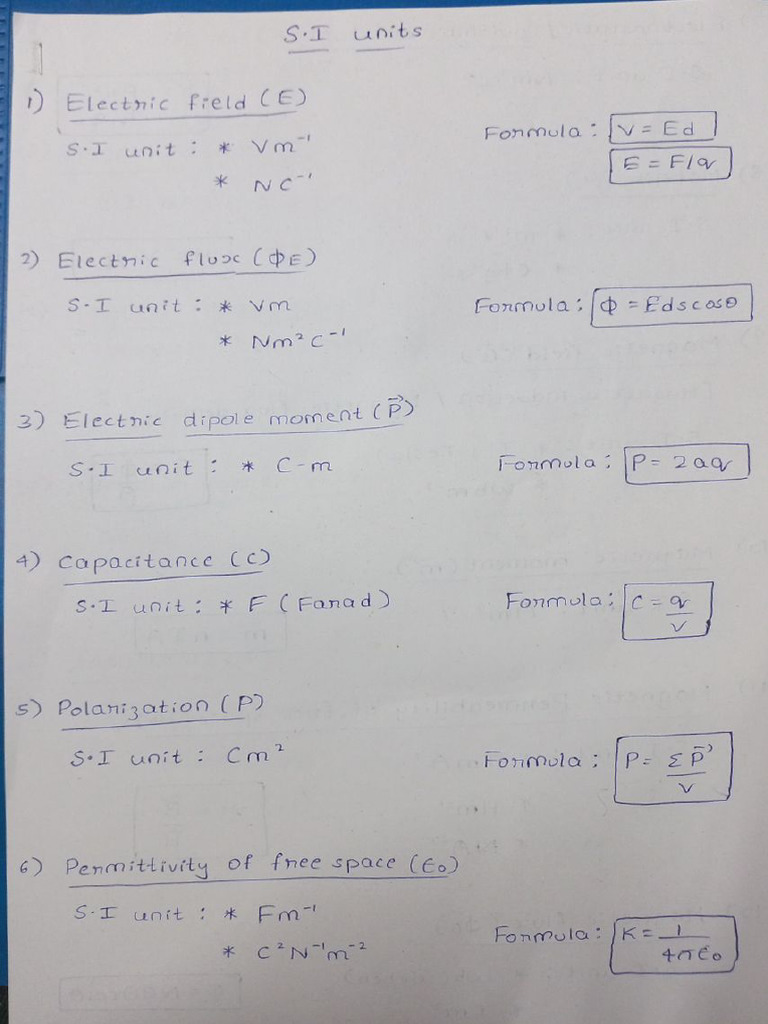 S.I units
1) Electric field (E)
S.I unit : * Vm⁻¹
Formula : V = Ed
* NC⁻¹
E = F/q
2) Electric flux (ΦE)
S.I unit : * Vm
Formula : Φ = Edscosθ
* Nm²C⁻¹
3) Electric dipole moment (P⃗)
S.I unit : * C-m
Formula : P = 2aq
4) Capacitance (C)
S.I unit : * F (Farad)
Formula : C = q/V
5) Polarization (P)
S.I unit : Cm²
Formula : P = ΣP⃗/V
6) Permittivity of free space (ε₀)
S.I unit : * Fm⁻¹
* C²N⁻¹m⁻²
Formula : K = 1/4πε₀